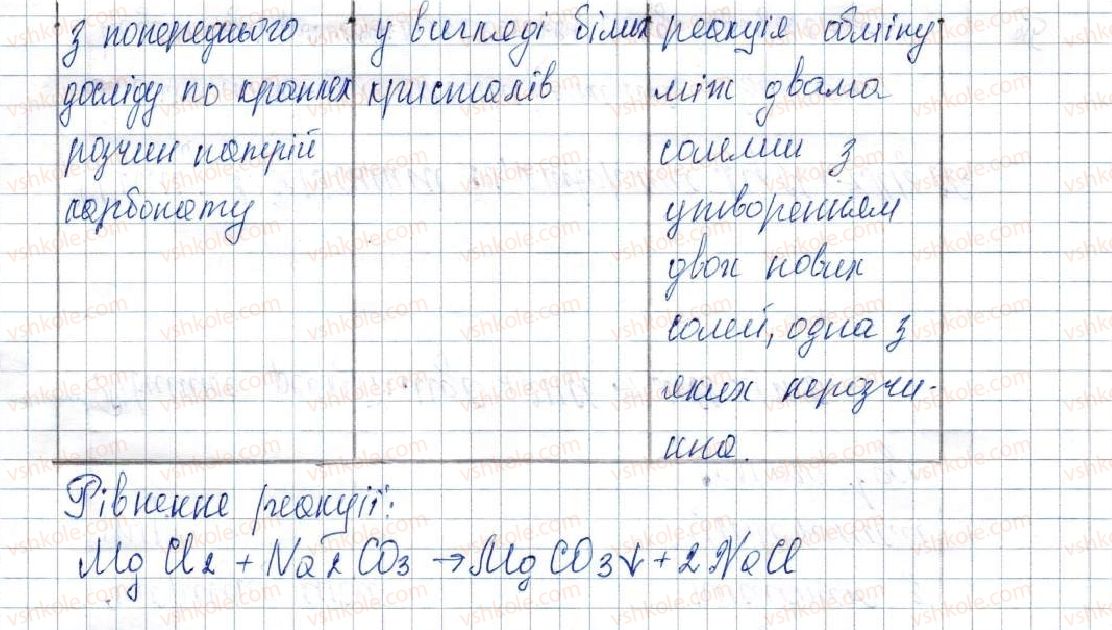 з попереднього
досліду по краплях
розчин натрій
карбонату
у вигляді білих
кристалів
реакція обміну
між двама
солями з
утворенням
двох нових
солей, одна з
яких нерозчи-
нна.
Рівнення реакції:
MgCl2 + Na2CO3 → MgCO3↓ + 2NaCl